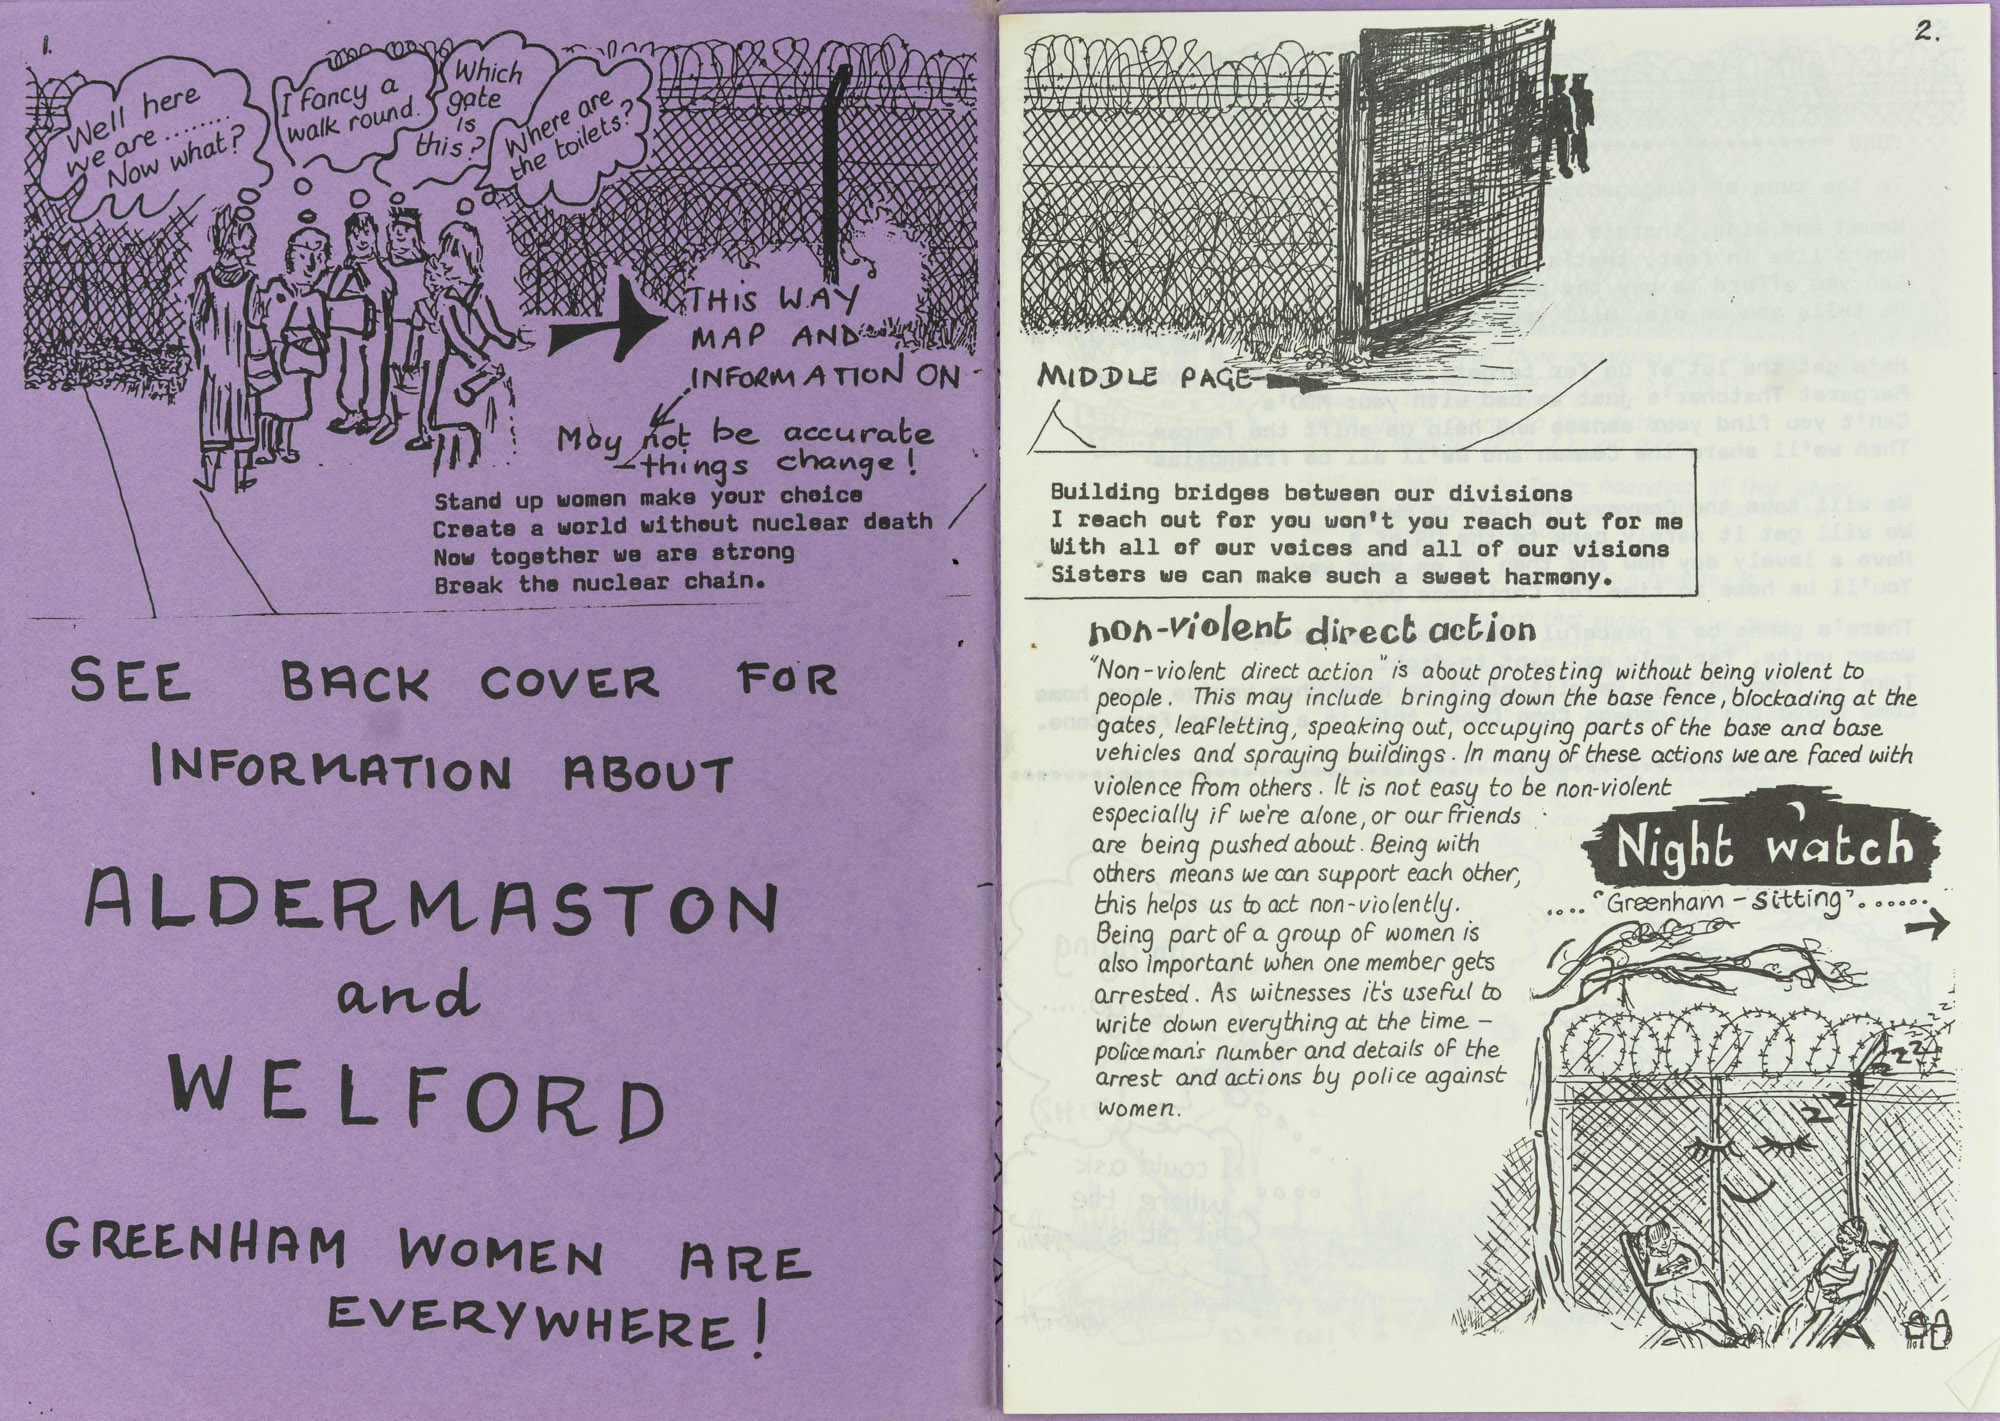 1.
Well here
we are ........
Now what?
I fancy a
walk round.
Which
gate
is
this?
Where are
the toilets?
THIS WAY
MAP AND
INFORMATION ON
May not be accurate
things change!
Stand up women make your choice
Create a world without nuclear death
Now together we are strong
Break the nuclear chain.
SEE BACK COVER FOR
INFORMATION ABOUT
ALDERMASTON
and
WELFORD
GREENHAM WOMEN ARE
EVERYWHERE!
2.
MIDDLE PAGE
Building bridges between our divisions
I reach out for you won't you reach out for me
With all of our voices and all of our visions
Sisters we can make such a sweet harmony.
non-violent direct action
"Non-violent direct action" is about protesting without being violent to
people. This may include bringing down the base fence, blockading at the
gates, leafletting, speaking out, occupying parts of the base and base
vehicles and spraying buildings. In many of these actions we are faced with
violence from others. It is not easy to be non-violent
especially if we're alone, or our friends
are being pushed about. Being with
others means we can support each other,
this helps us to act non-violently.
Being part of a group of women is
also important when one member gets
arrested. As witnesses it's useful to
write down everything at the time –
policeman's number and details of the
arrest and actions by police against
women.
Night watch
.... "Greenham – sitting" ......
zz
z
zz